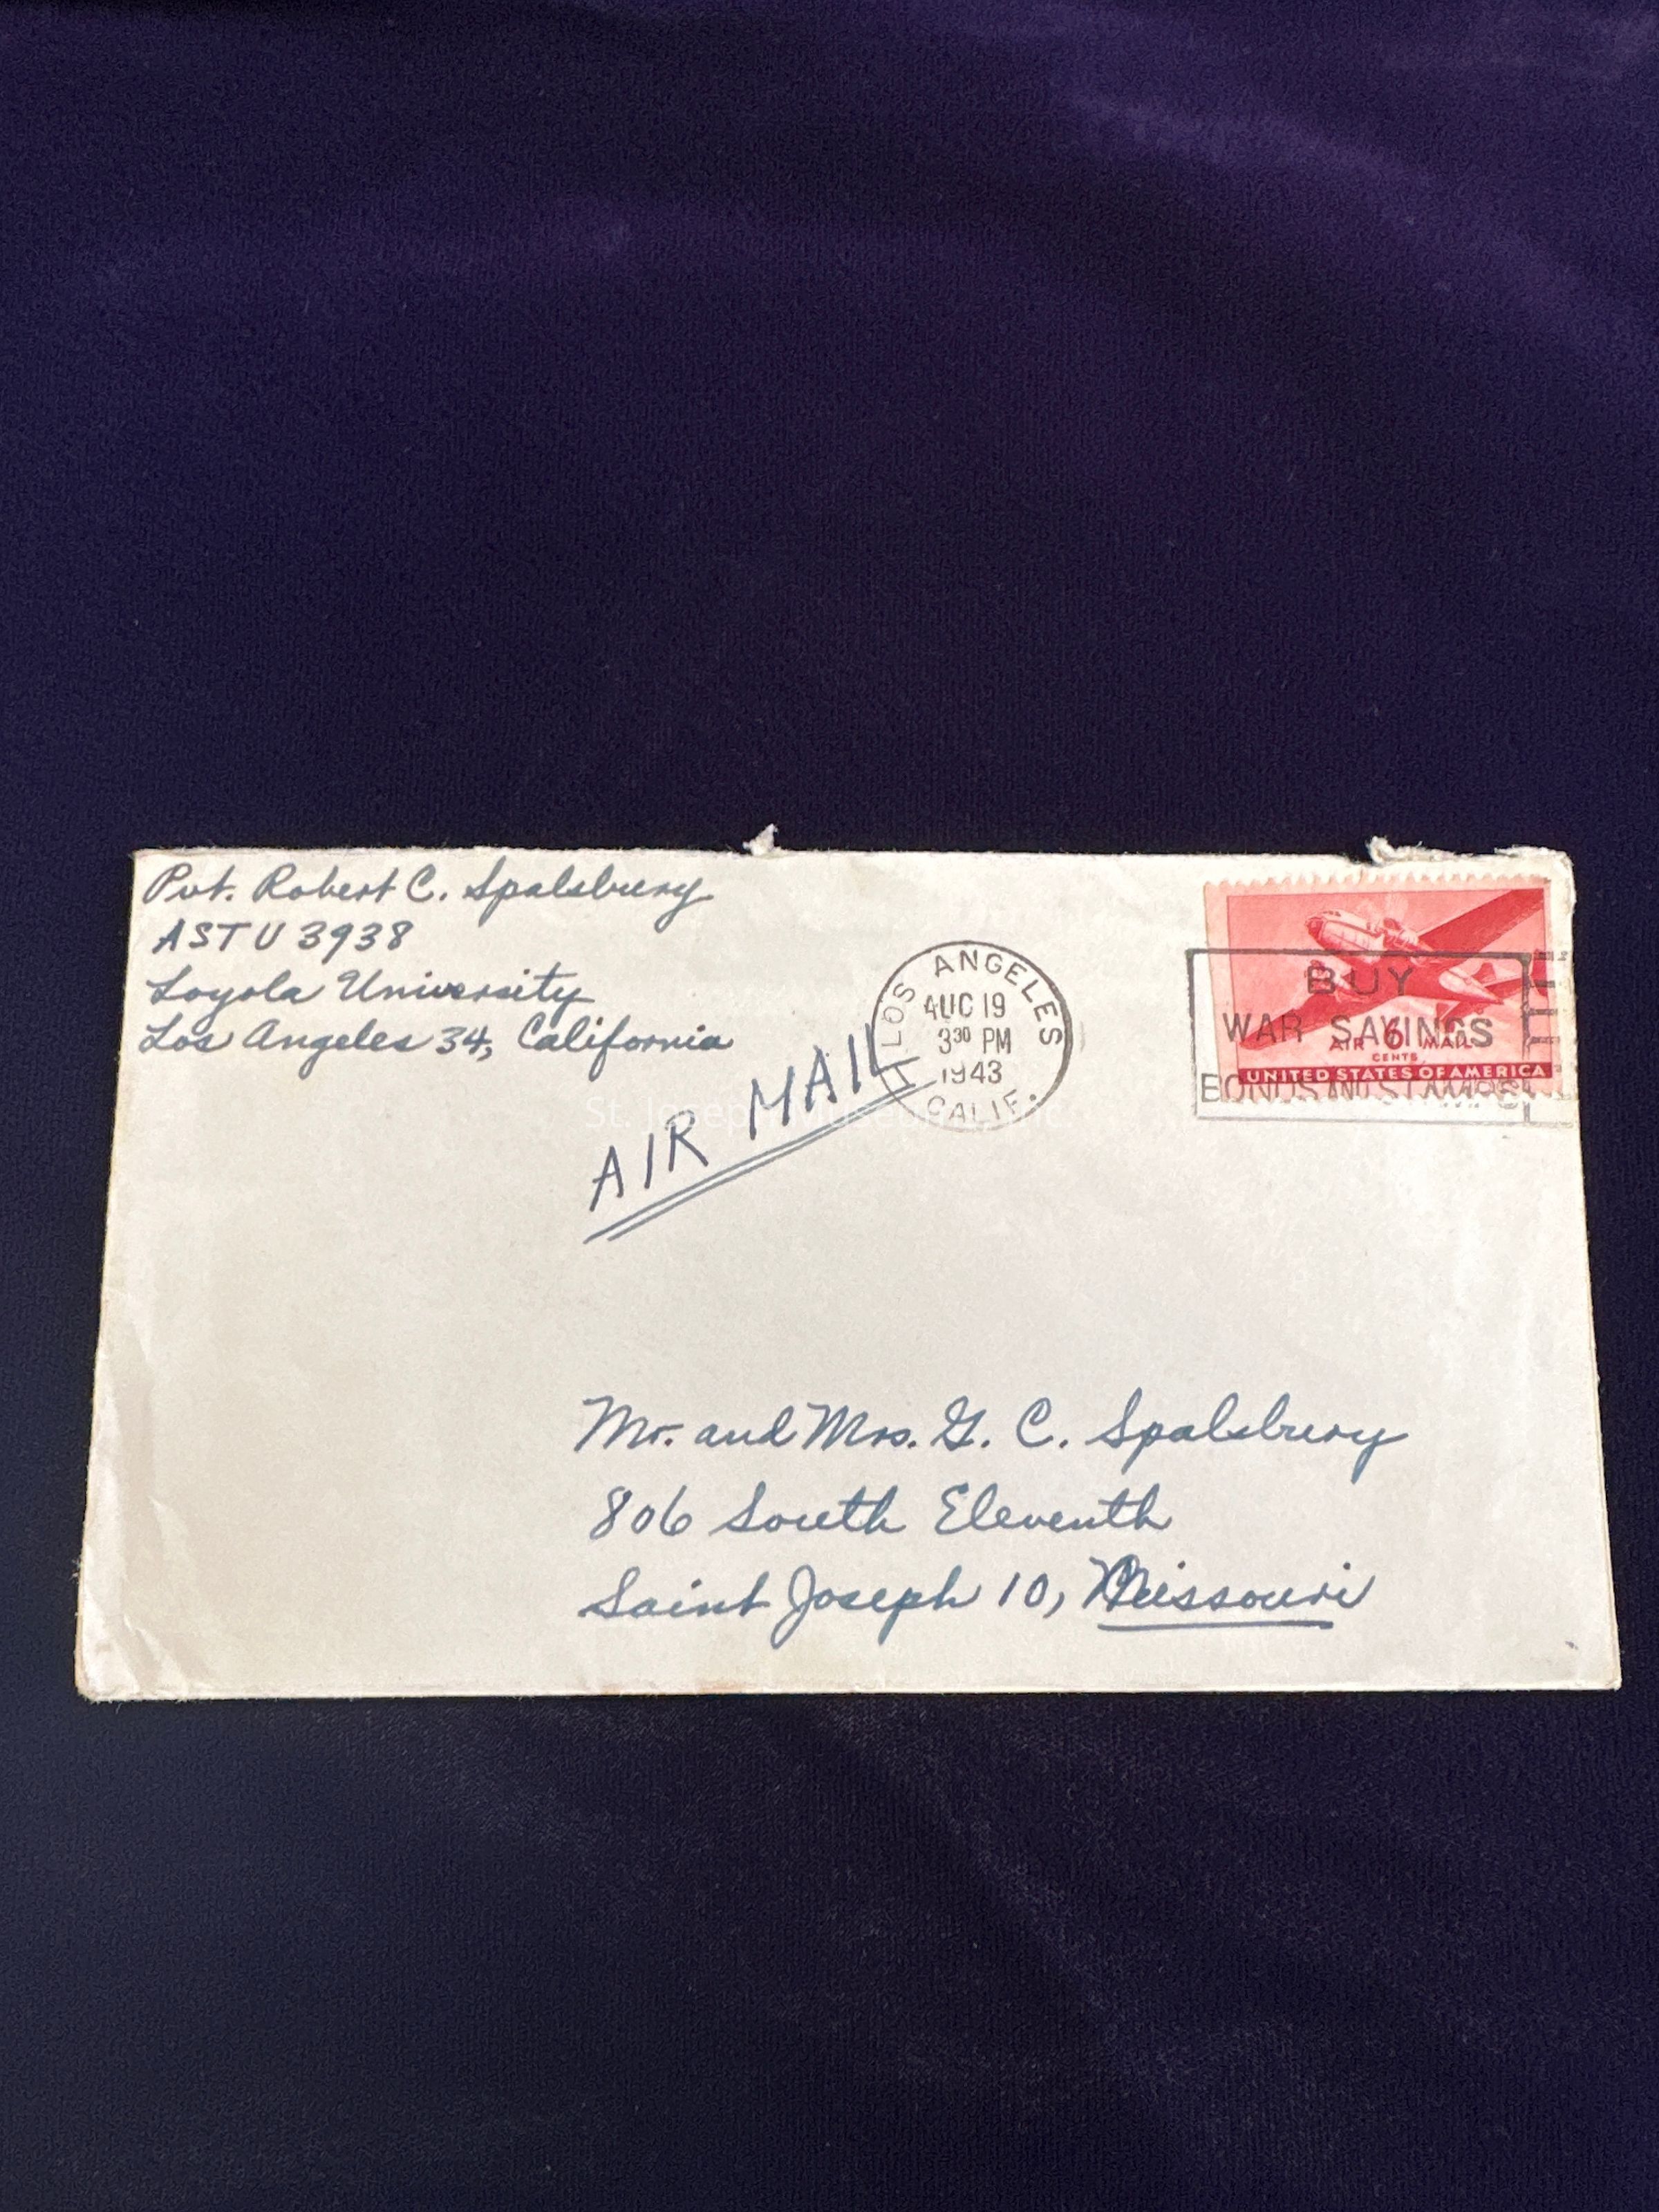 Pvt. Robert C. Spalsbury
ASTU 3938
Loyola University
Los Angeles 34, California
AIR MAIL
LOS ANGELES
AUG 19
3 30 PM
1943
CALIF.
BUY
WAR SAVINGS
BONDS AND STAMPS
AIR 6 MAIL
CENTS
UNITED STATES OF AMERICA
St. Joseph Museums, Inc.
Mr. and Mrs. G. C. Spalsbury
806 South Eleventh
Saint Joseph 10, Missouri